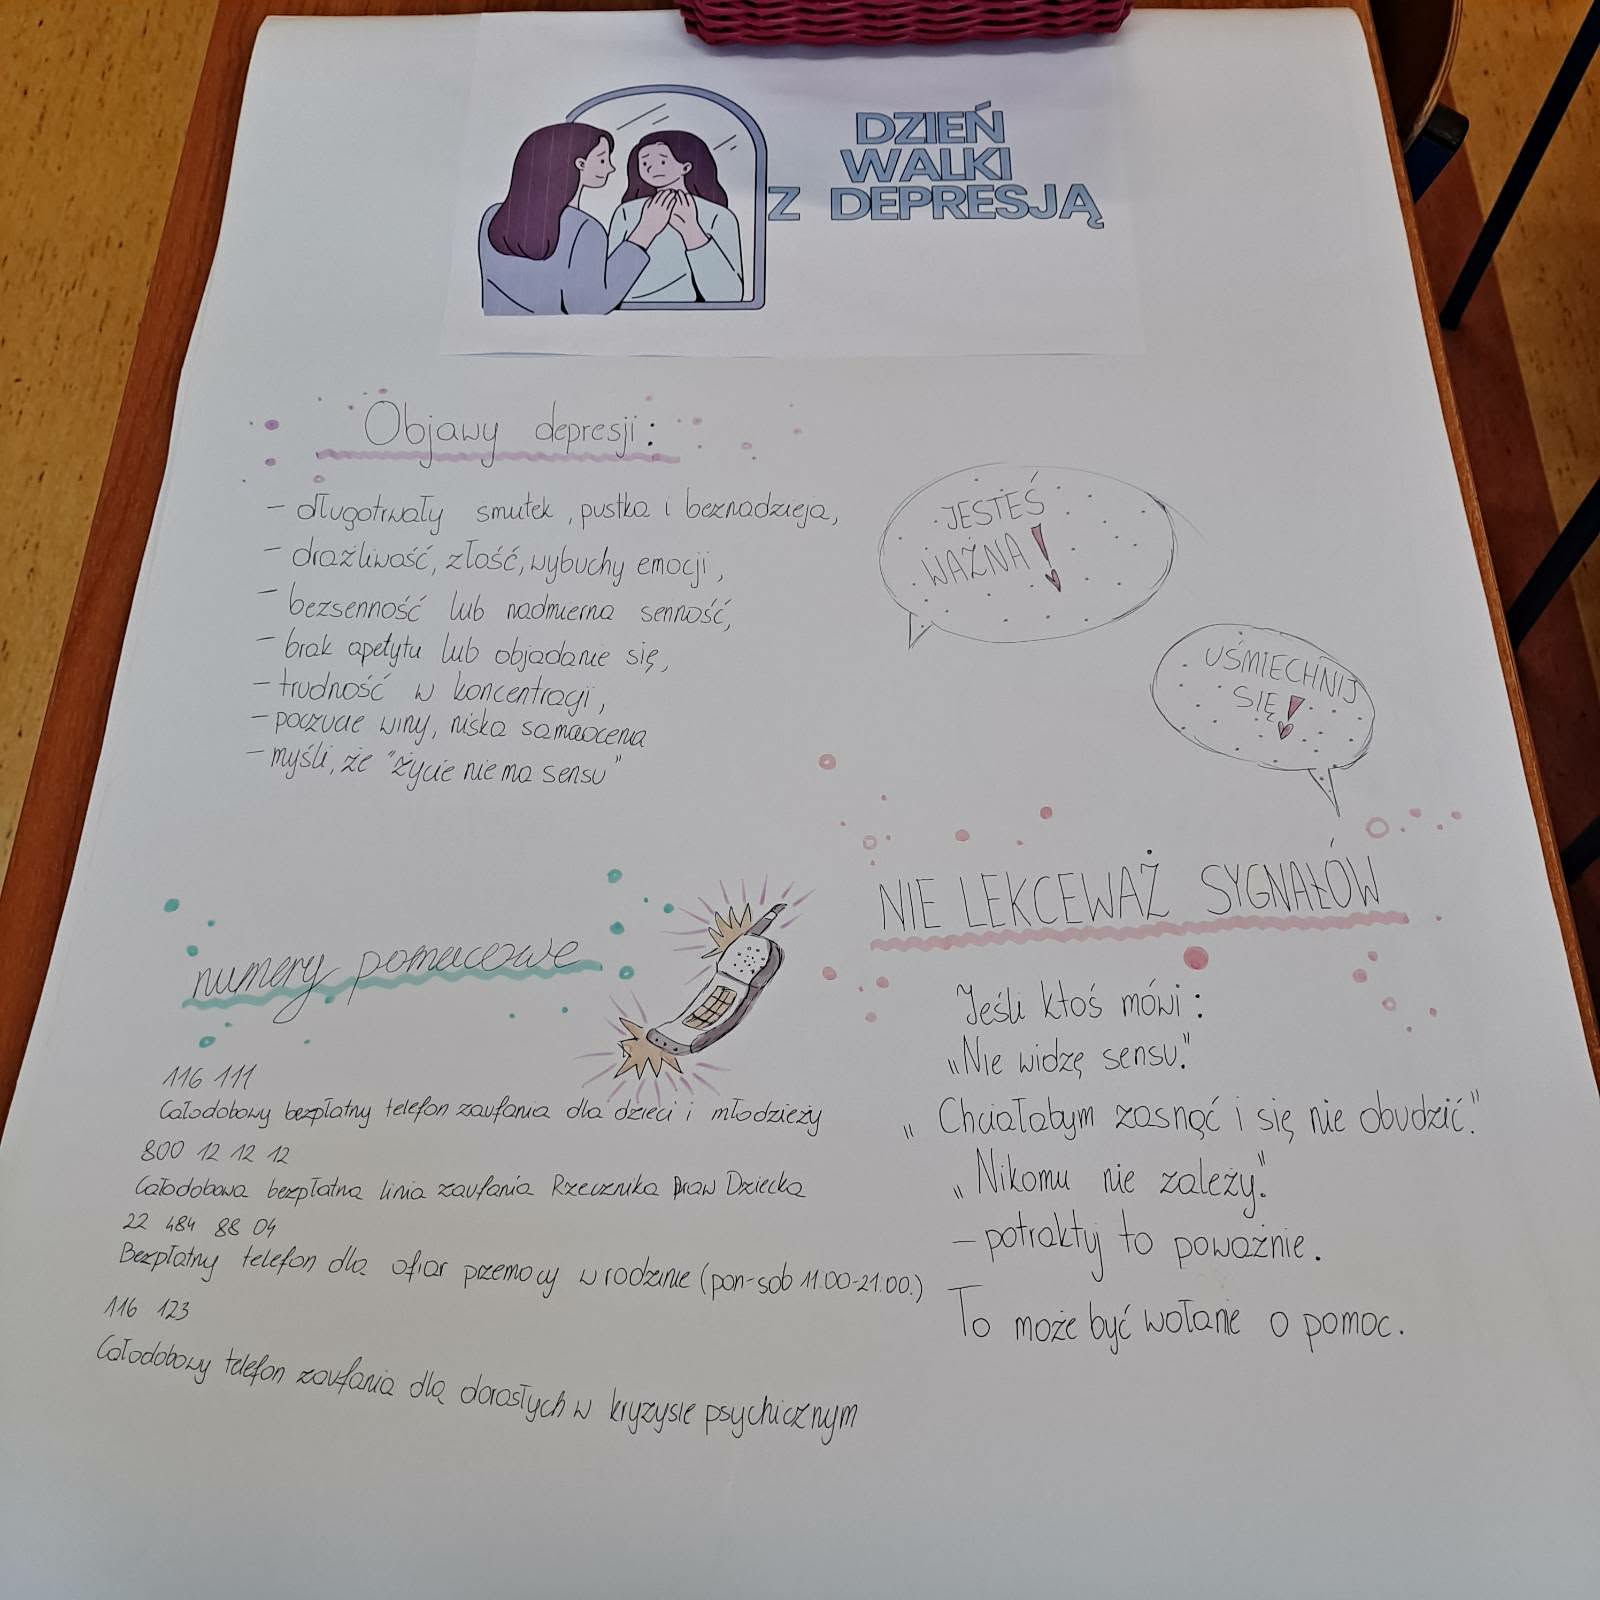 DZIEŃ
WALKI
Z DEPRESJĄ
Objawy depresji:
- długotrwały smutek, pustka i beznadzieja,
- drażliwość, złość, wybuchy emocji,
- bezsenność lub nadmierna senność,
- brak apetytu lub objadanie się,
- trudność w koncentracji,
- poczucie winy, niska samoocena
- myśli, że "życie nie ma sensu"
JESTEŚ
WAŻNA!
UŚMIECHNIJ
SIĘ!
numery pomocowe
116 111
Całodobowy bezpłatny telefon zaufania dla dzieci i młodzieży
800 12 12 12
Całodobowa bezpłatna linia zaufania Rzecznika Praw Dziecka
22 484 88 04
Bezpłatny telefon dla ofiar przemocy w rodzinie (pon-sob 11.00-21.00.)
116 123
Całodobowy telefon zaufania dla dorosłych w kryzysie psychicznym
NIE LEKCEWAŻ SYGNAŁÓW
Jeśli ktoś mówi:
„Nie widzę sensu."
„Chciałabym zasnąć i się nie obudzić."
„Nikomu nie zależy."
- potraktuj to poważnie.
To może być wołanie o pomoc.